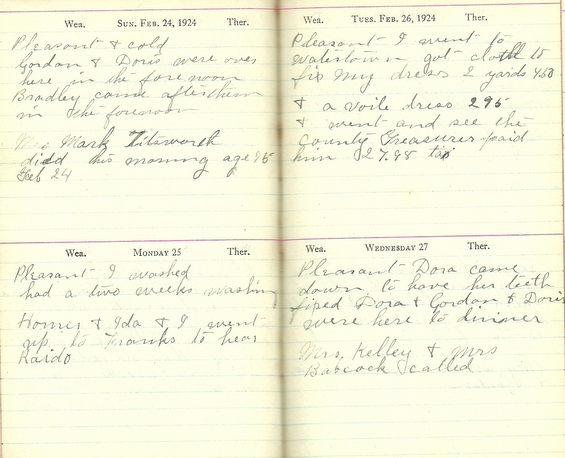 Wea. SUN. FEB. 24, 1924 Ther.
Pleasant & cold
Gordon & Doris were over
here in the forenoon
Bradley came after them
in the forenoon
Mrs Mark Titsworth
died this morning age
Feb 24
Wea. MONDAY 25 Ther.
Pleasant I washed
had a two weeks washin
Homer & Ida & I went
up to Franks to hear
Raido
Wea. TUES. FEB. 26, 1924 Ther.
Pleasant I went to
Watertown got cloth to
fix my dress 2 yards 4.50
& a voile dress 295
& went and see the
County Treasurer paid
him $27.98 tax
Wea. WEDNESDAY 27 Ther.
Pleasant Dora came
down to have her teeth
fixed Dora & Gordon & Doris
were here to dinner
Mrs. Kelley & Mrs
Babcock called